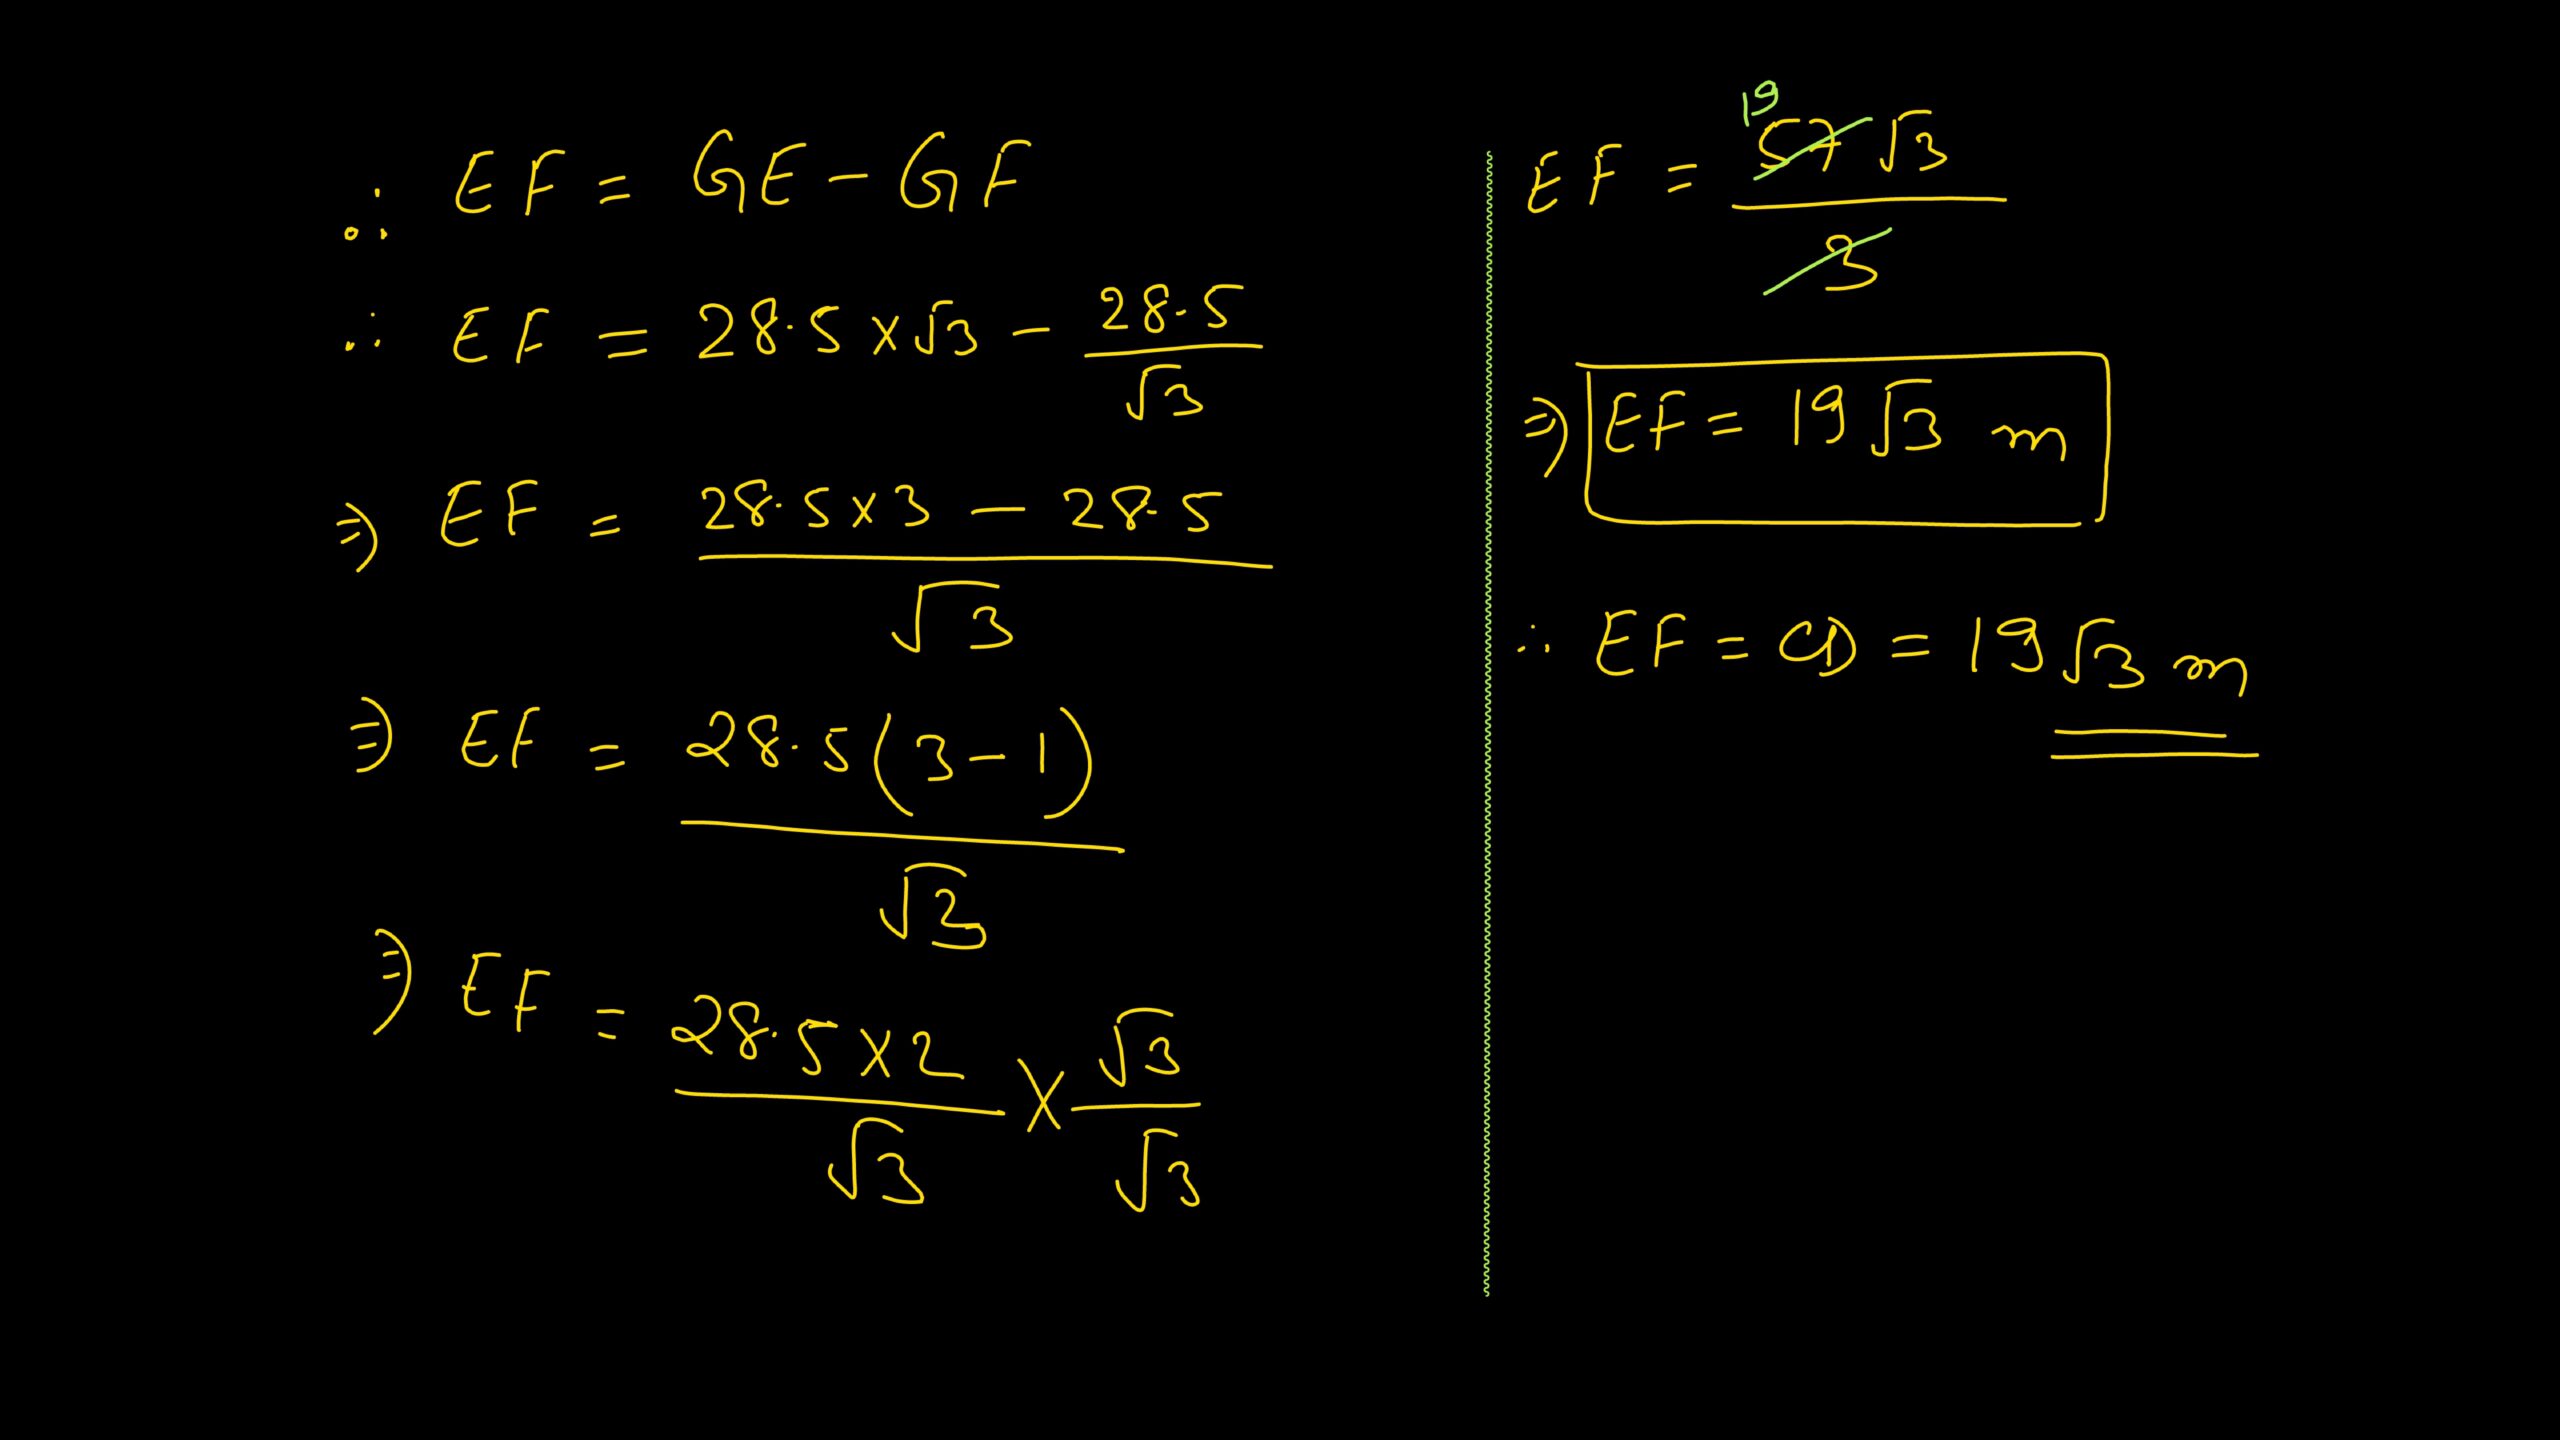 ∴ EF = GE - GF
∴ EF = 28.5 × √3 - 28.5/√3
⇒ EF = (28.5 × 3 - 28.5)/√3
⇒ EF = 28.5(3-1)/√3
⇒ EF = 28.5 × 2/√3 × √3/√3
19
EF = 57√3/3
⇒ EF = 19√3 m
∴ EF = CD = 19√3 m